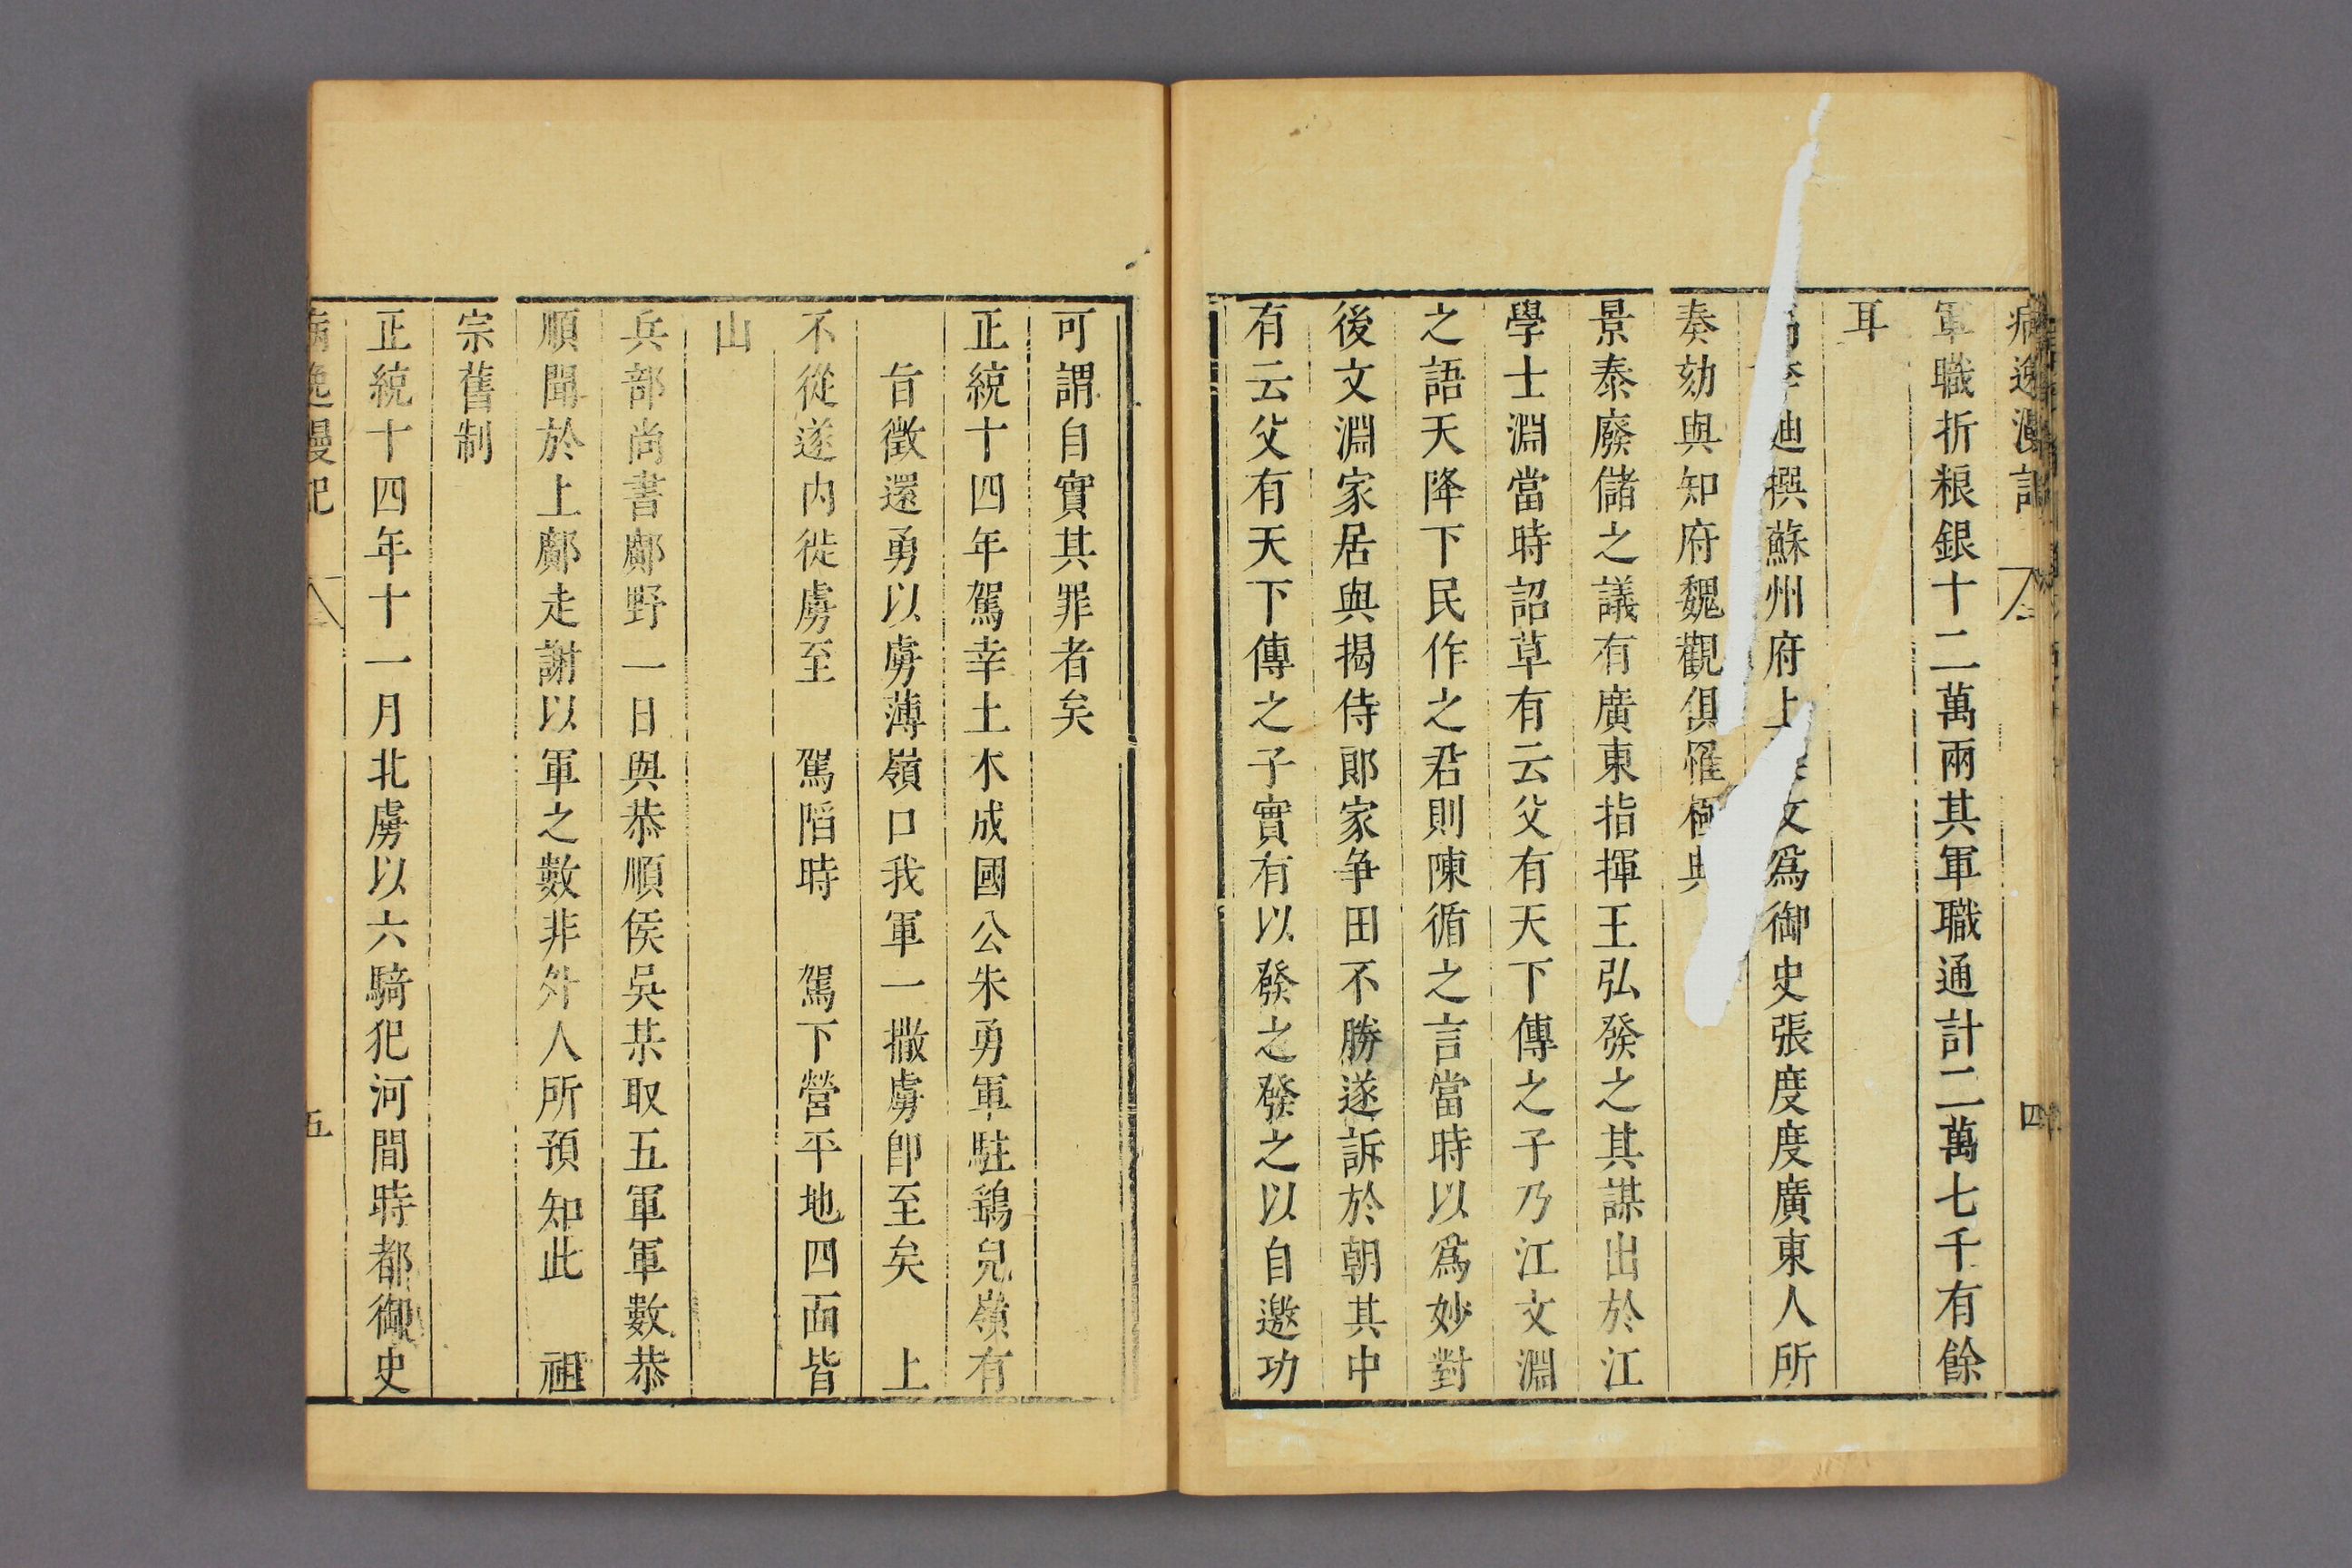 病逸漫記 四
軍職折粮銀十二萬兩其軍職通計二萬七千有餘
耳
迪撰蘇州府上文爲御史張度度廣東人所
奏劾與知府魏觀俱罹極典
景泰廢儲之議有廣東指揮王弘發之其謀出於江
學士淵當時詔草有云父有天下傳之子乃江文淵
之語天降下民作之君則陳循之言當時以爲妙對
後文淵家居與揭侍郎家争田不勝遂訴於朝其中
有云父有天下傳之子實有以發之發之以自邀功
可謂自實其罪者矣
正統十四年駕幸土木成國公朱勇軍駐鷂兒嶺有
旨徵還勇以虜薄嶺口我軍一撤虜即至矣 上
不從遂内徙虜至 駕陷時 駕下營平地四面皆
山
兵部尚書鄺野一日與恭順侯吳某取五軍軍數恭
順聞於上鄺走謝以軍之數非外人所預知此 祖
宗舊制
正統十四年十一月北虜以六騎犯河間時都御史
病逸漫記 五